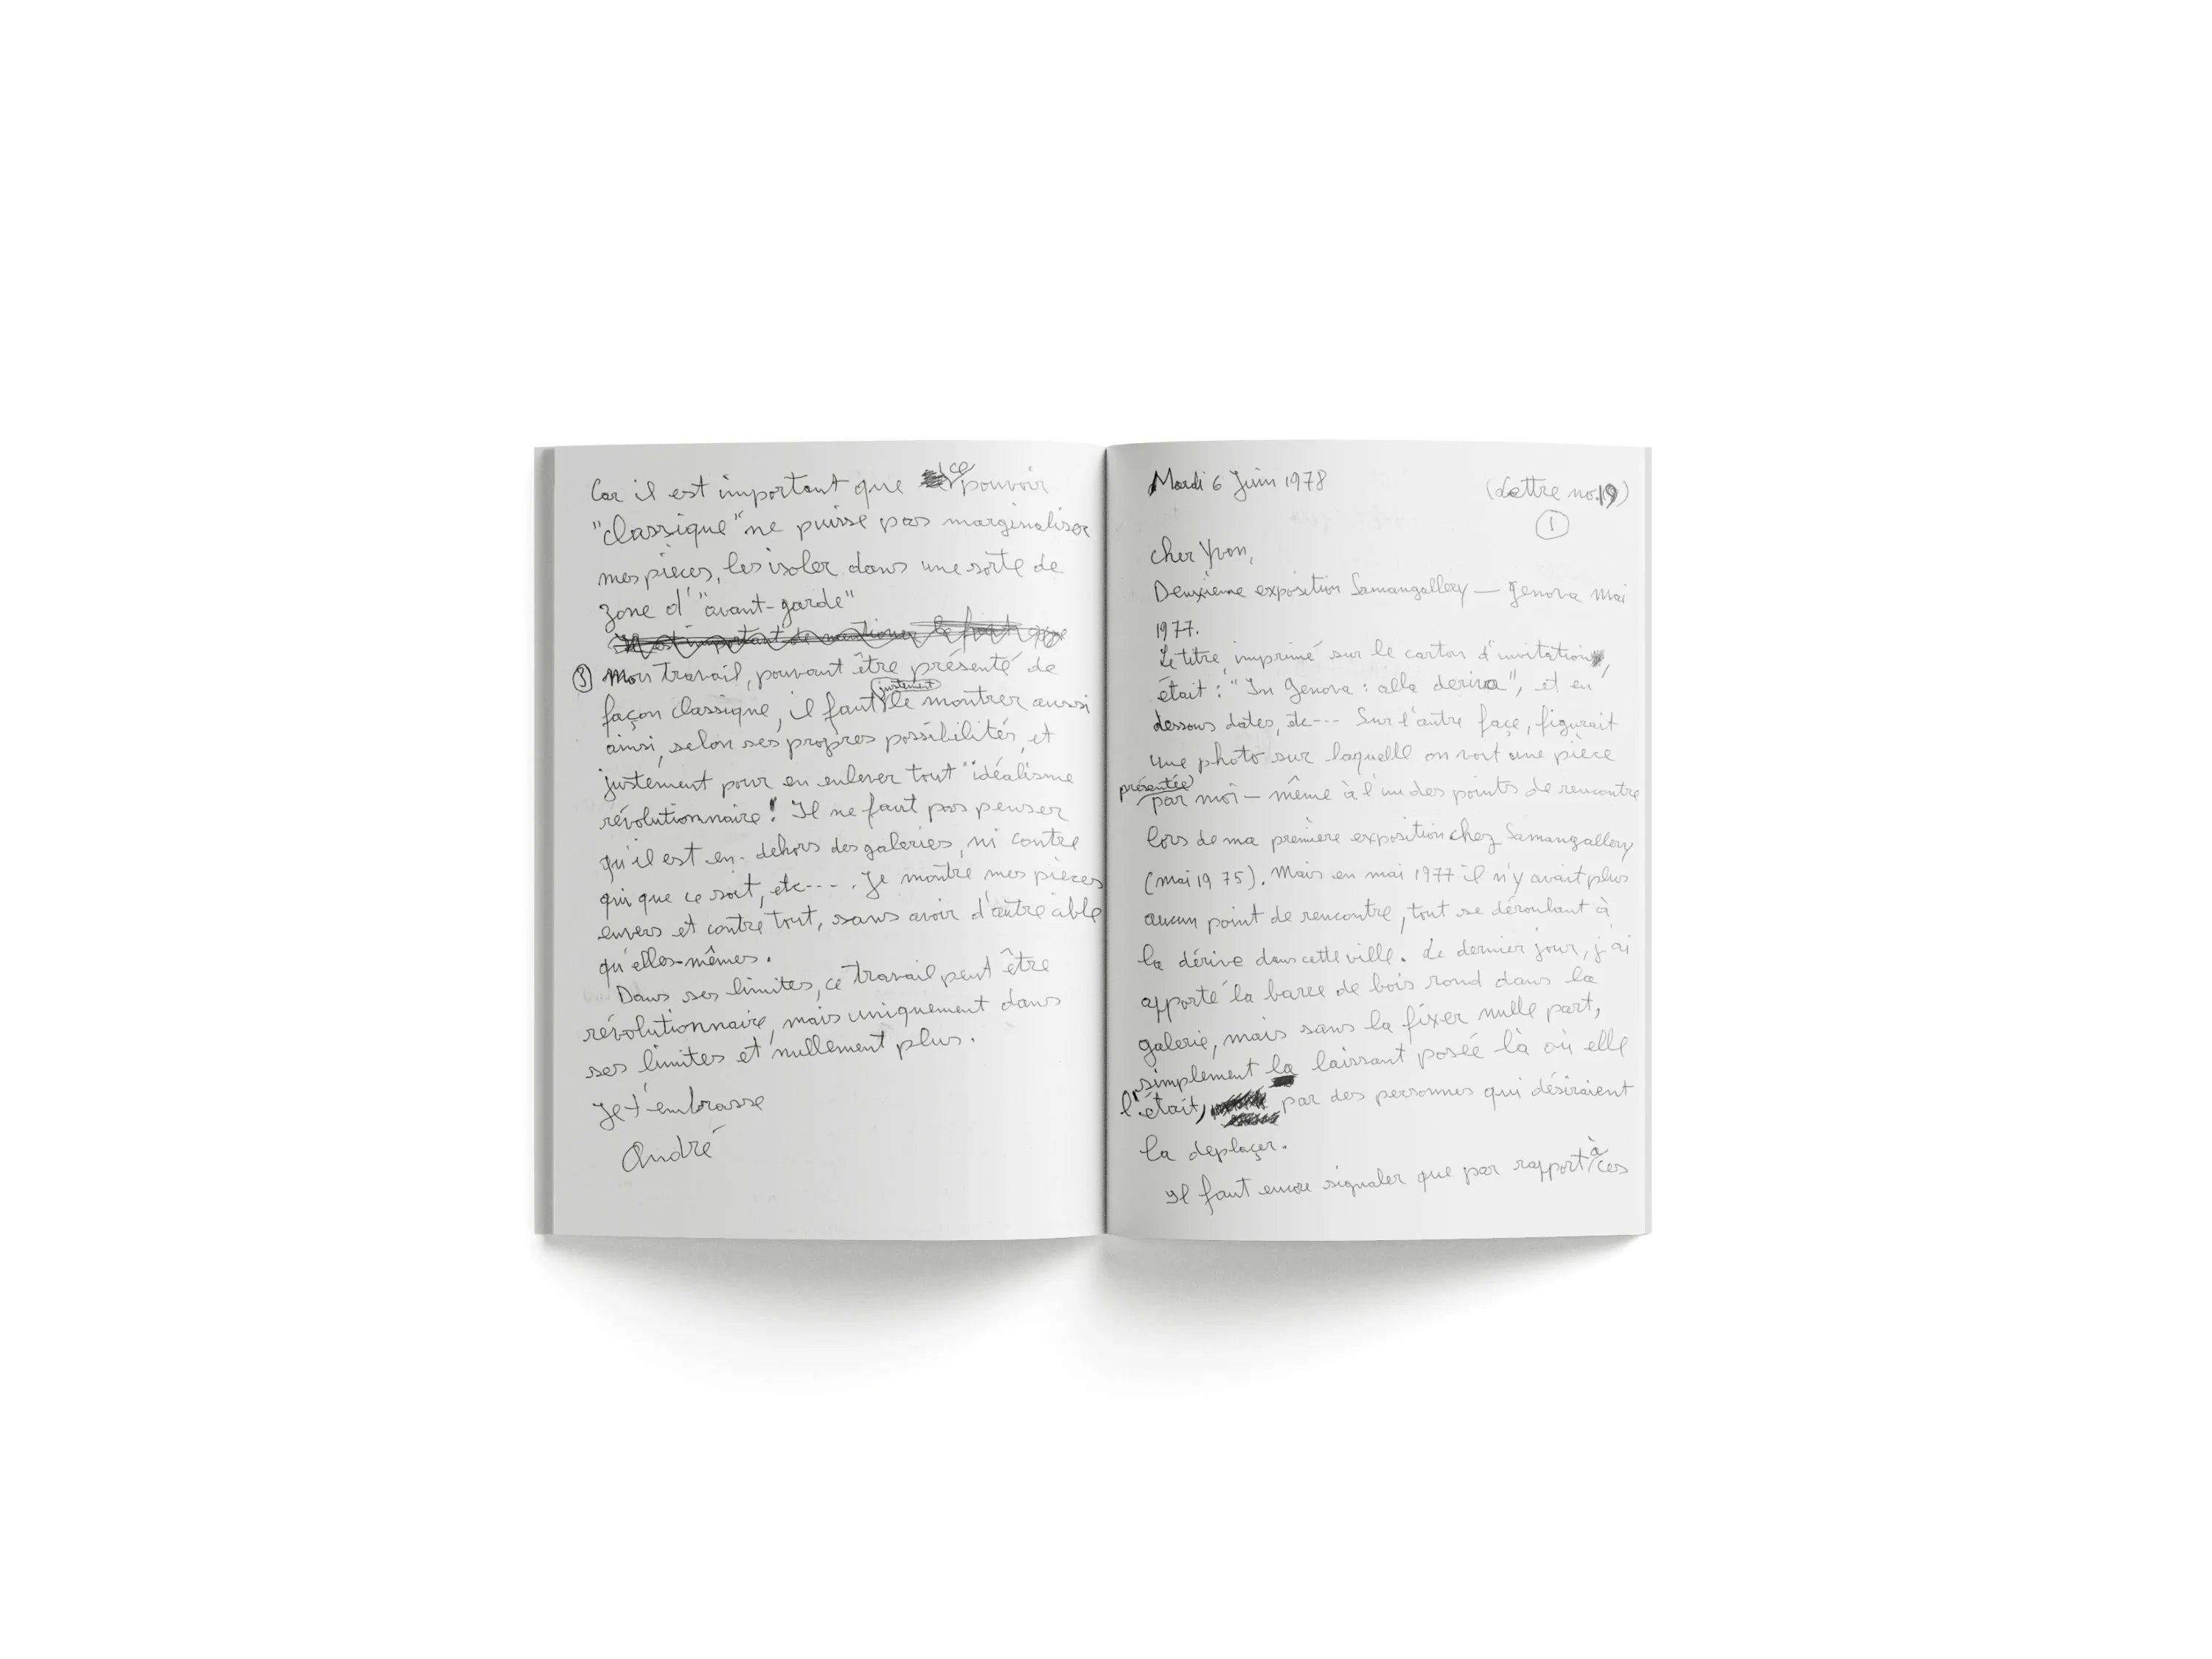 Car il est important que ce pouvoir
"classique" ne puisse pas marginaliser
mes pièces, les isoler dans une sorte de
zone d'"avant-garde"
Il est important de mentionner le fait que
③ Mon travail, pouvant être présenté de
façon classique, il faut justement le montrer aussi
ainsi, selon ses propres possibilités, et
justement pour en enlever tout "idéalisme
révolutionnaire"! Il ne faut pas penser
qu'il est en-dehors des galeries, ni contre
qui que ce soit, etc---. Je montre mes pièces
envers et contre tout, sans avoir d'autre cible
qu'elles-mêmes.
Dans ses limites, ce travail peut être
révolutionnaire, mais uniquement dans
ses limites et nullement plus.
Je t'embrasse
André
Mardi 6 Juin 1978 (Lettre no.19)
①
Cher Yvon,
Deuxième exposition Samangallery — Genova Mai
1977.
Le titre, imprimé sur le carton d'invitation,
était : "In Genova : alla deriva", et en
dessous dates, etc--- Sur l'autre face, figurait
une photo sur laquelle on voit une pièce
présentée par moi-même à l'un des points de rencontre
lors de ma première exposition chez Samangallery
(mai 1975). Mais en mai 1977 il n'y avait plus
aucun point de rencontre, tout se déroulant à
la dérive dans cette ville. Le dernier jour, j'ai
apporté la barre de bois rond dans la
galerie, mais sans la fixer nulle part,
simplement la laissant posée là où elle
l'était, par des personnes qui désiraient
la deplaçer.
Il faut encore signaler que par rapport à ces